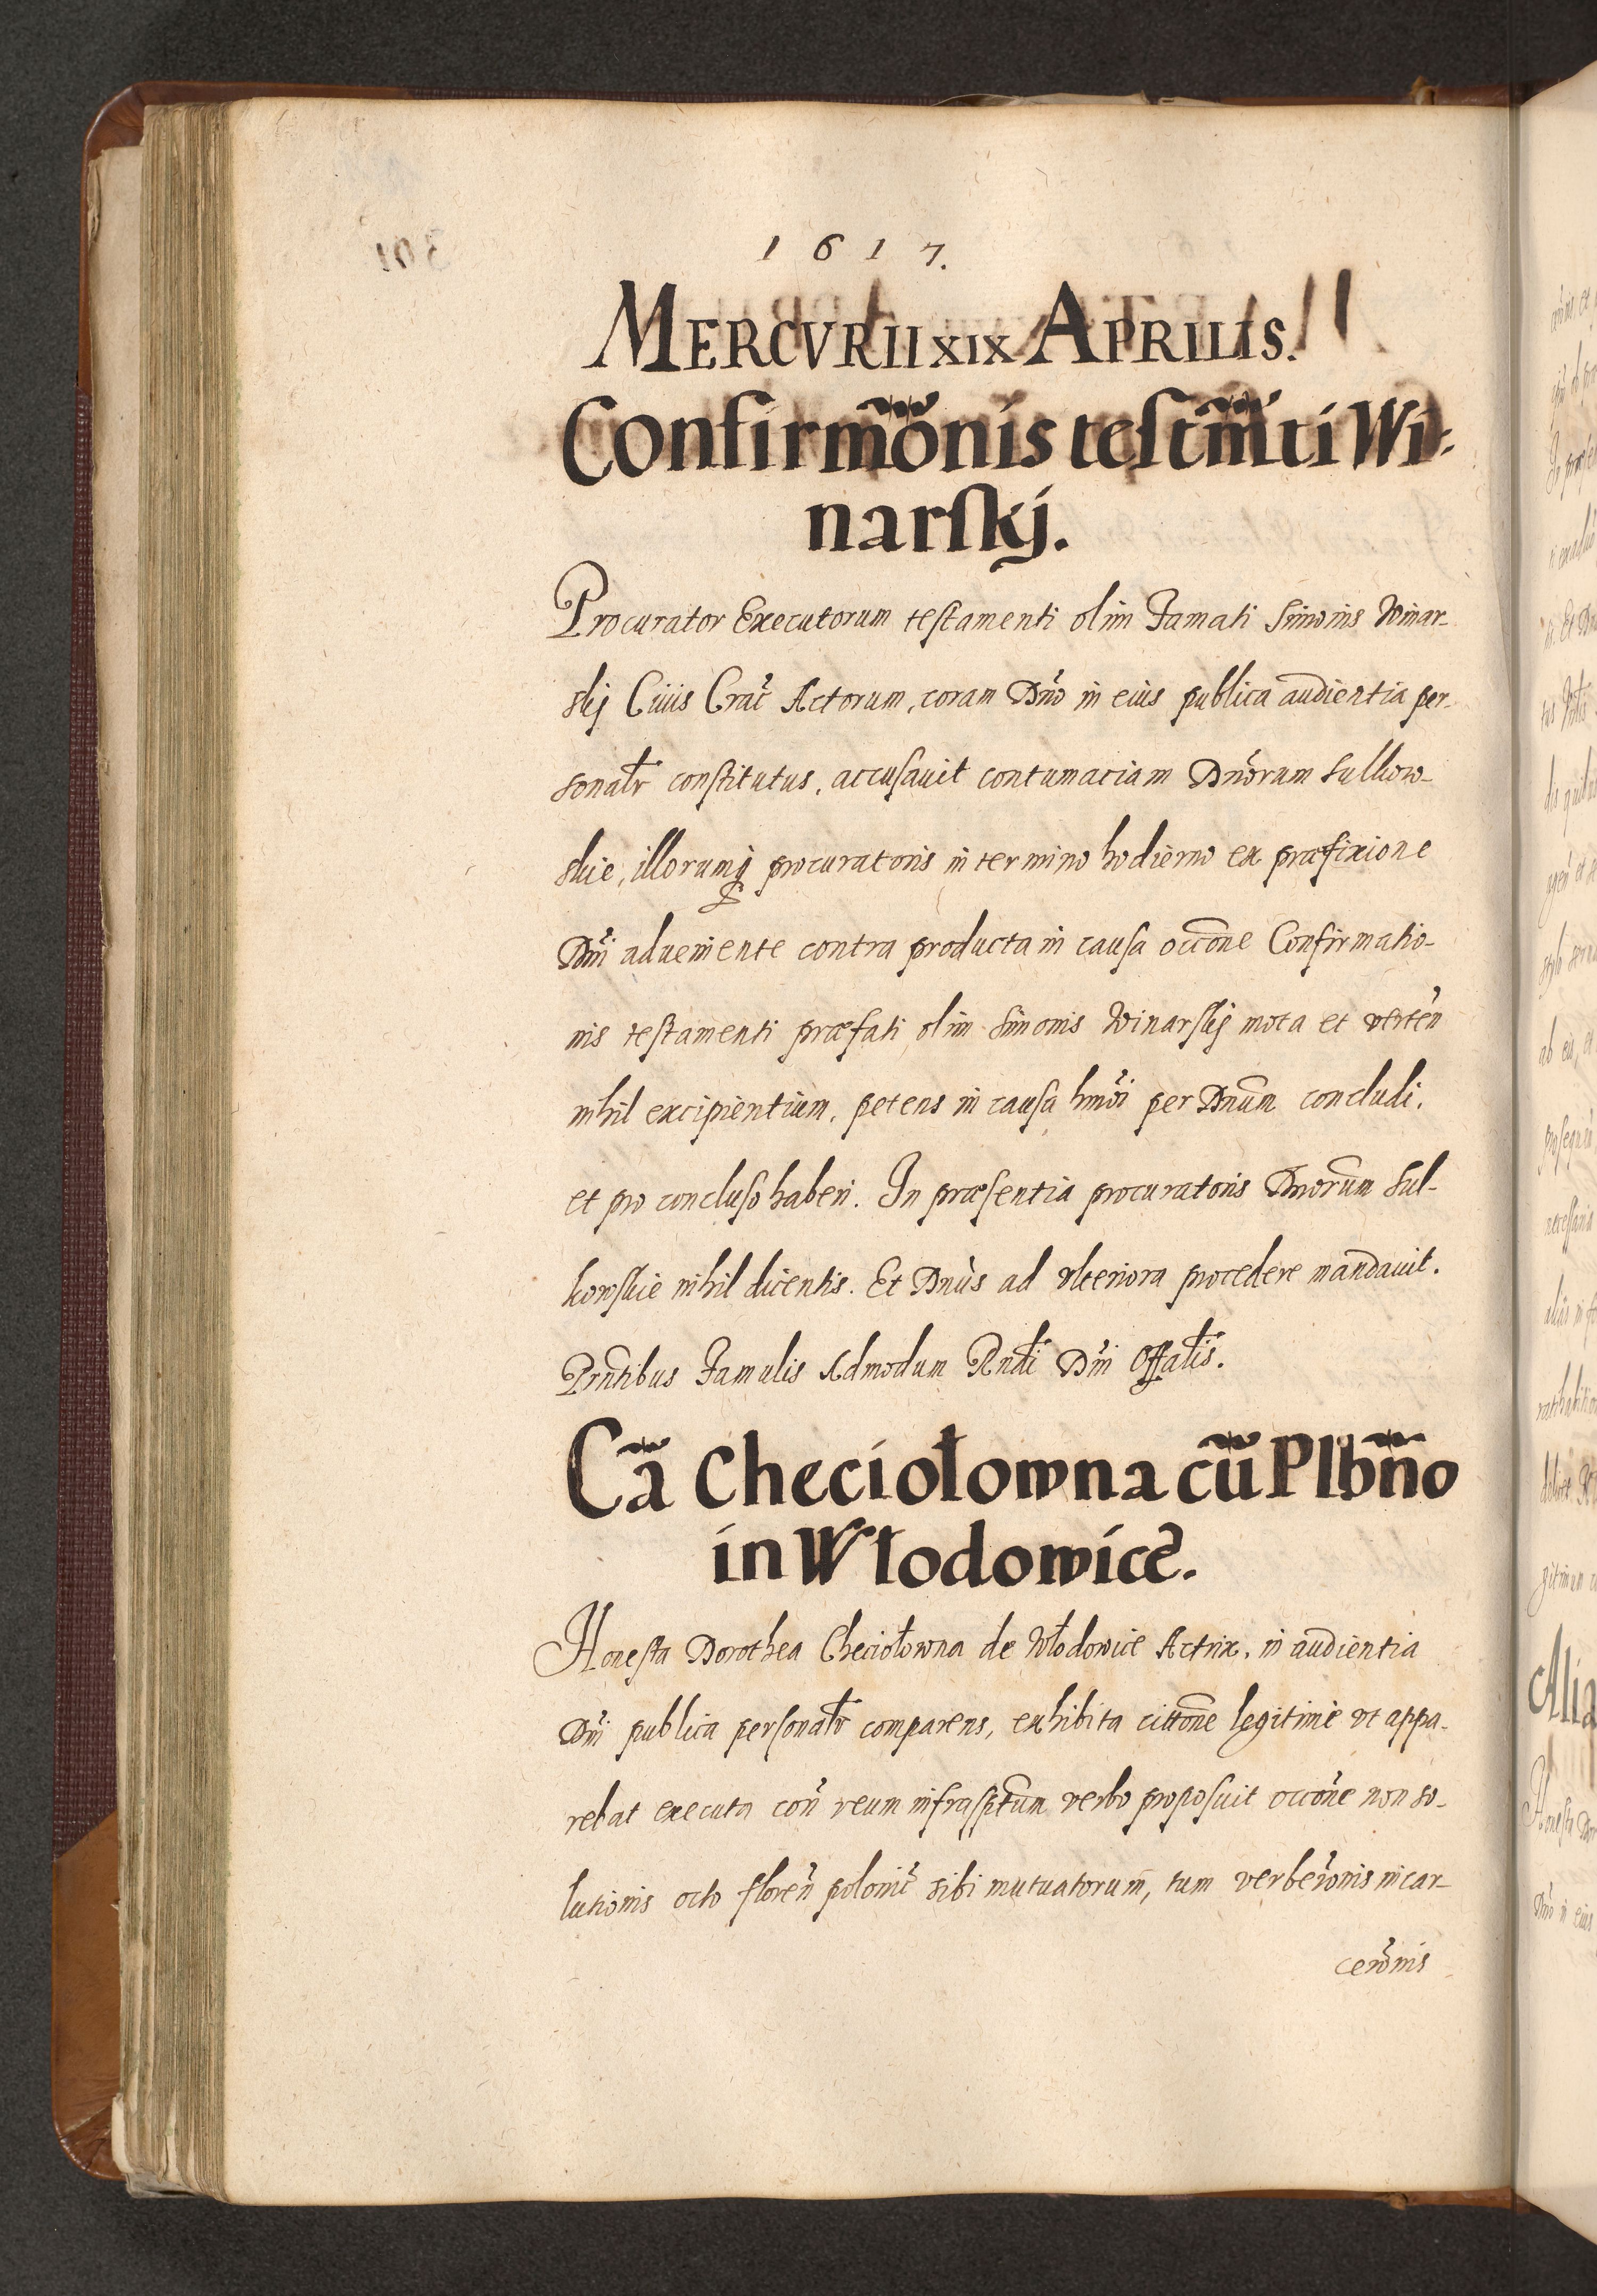 1617.
MERCVRII XIX APRILIS.
Confirm̃onis testm̃ti Wi-
narskj.
Procurator Executorum testamenti olim Famati Simonis Winar-
skij Ciuis Crac̃ Actorum, coram Dño in eius publica audientia per-
sonalr̃ constitutus, accusauit contumaciam Dñorum Sulkow-
skie, illorumq procuratoris in termino hodierno ex præfixione
Dñi adueniente contra producta in causa occõne Confirmatio-
nis testamenti præfati olim Simonis Winarskij mota et verteñ
nihil excipientium, petens in causa hmõi per Dnũm concludi,
et pro concluso haberi. In præsentia procuratoris Dnorũm Sul-
kowskie nihil dicentis. Et Dnũs ad vlteriora procedere mandauit.
Prñtibus Famulis Admodum Rndi Dñi Offalis.
Cã Checiołowna cũ Plbño
in Włodowicẽ.
Honesta Dorothea Checiołowna de Włodowice Actrix, in audientia
Dñi publica personalr̃ comparens, exhibita cittõne legitimè vt appa-
rebat executa coñ reum infrasptũm verbo proposuit occõne non so-
lutionis octo floreñ polonic̃ sibi mutuatorum̃, tum verberõnis incar-
cerõnis